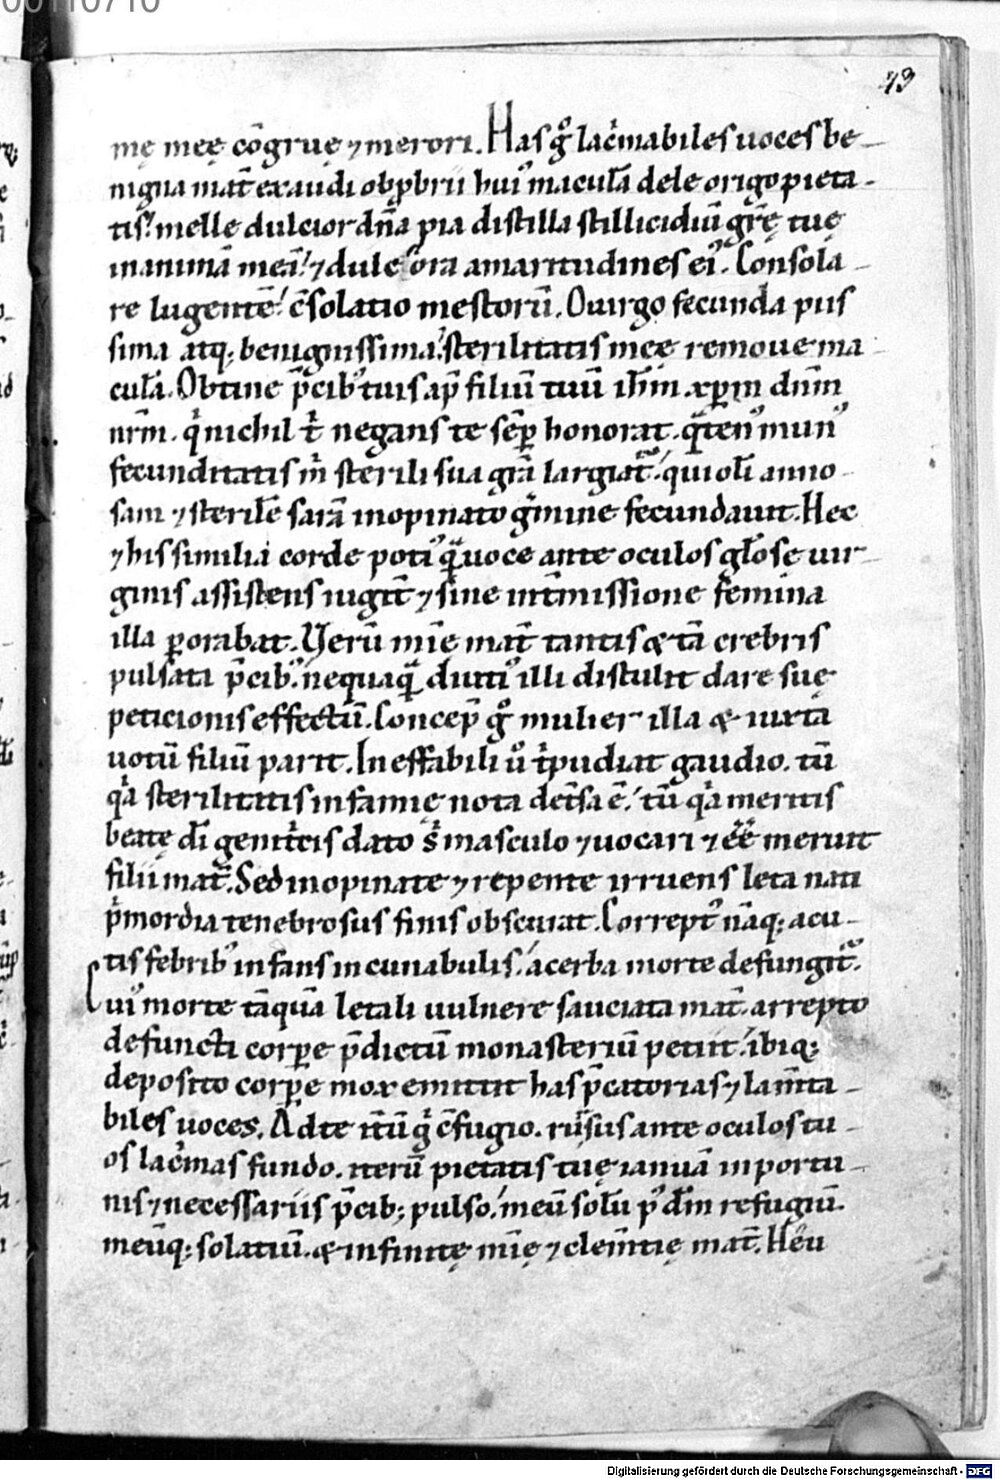 00110710
43
mę meę cõgruę ⁊ merori. Has gͦ lac̃mabiles uoces be-
nigna mat̃ exaudi obꝓbrii huiꝰ maculã dele origo pieta-
tis. melle dulcior dña pia distilla stillicidiũ gr̃ę tuę
in animã meã. ⁊ dulcora amaritudines eiꝰ. Consola-
re lugentẽ. c̃solatio mestorũ. O uirgo fecunda piis
sima atq; benignissima. sterilitatis meę remoue ma-
culã. Obtine p̃cibꝰ tuis ap̃ filiũ tuũ ih̃m xp̃m dñm
nr̃m. qͥ nichil t̃ negans te sẽꝑ honorat. qͣtenꝰ munꝰ
fecunditatis m̃ sterili sua gr̃a largiat᷑. qui oli anno-
sam ⁊ sterilẽ sarã inopinato g̃mine fecundauit. Hec
⁊ his similia corde potiꝰ qͣ̃ uoce ante oculos gl̃osę uir-
ginis assistens iugit̃ ⁊ sine int̃missione femina
illa ꝑorabat. Verũ mĩe mat̃ tantis & tã crebris
pulsata p̃cibꝰ. nequaqͣ̃ diutiꝰ illi distulit dare suę
peticionis effectũ. Concep̃ gͦ mulier illa & iuxta
uotũ filiũ parit. Ineffabili uͦ tͥpudiat gaudio. tũ
qͥa sterilitatis infamię nota det̃sa ẽ. tũ qͥa meritis
beatę dĩ genitͥcis dato s̃ masculo ⁊ uocari ⁊ ẽẽ meruit
filii mat̃. Sed inopinate ⁊ repente irruens leta nati
pͥmordia tenebrosus finis obscurat. Correptꝰ nãq; acu-
tis febribꝰ infans in cunabulis. acerba morte defungit᷑.
Cuiꝰ morte tãquã letali uulnere sauciata mat̃. arrepto
defuncti corꝑe p̃dictũ monasteriũ petiit. ibiq;
deposito corꝑe mox emittit has p̃catorias ⁊ lam̃ta-
biles uoces. Ad te it̃ũ gͥ c̃fugio. rursus ante oculos tu-
os lac̃mas fundo. iterũ pietatis tuę ianuã inportu-
nis ⁊ necessariis p̃cib; pulso. meũ solũ pꝰ dm̃ refugiũ.
meũq; solatiũ. & infinitę mĩę ⁊ clem̃tię mat̃. Heu
Digitalisierung gefördert durch die Deutsche Forschungsgemeinschaft - DFG